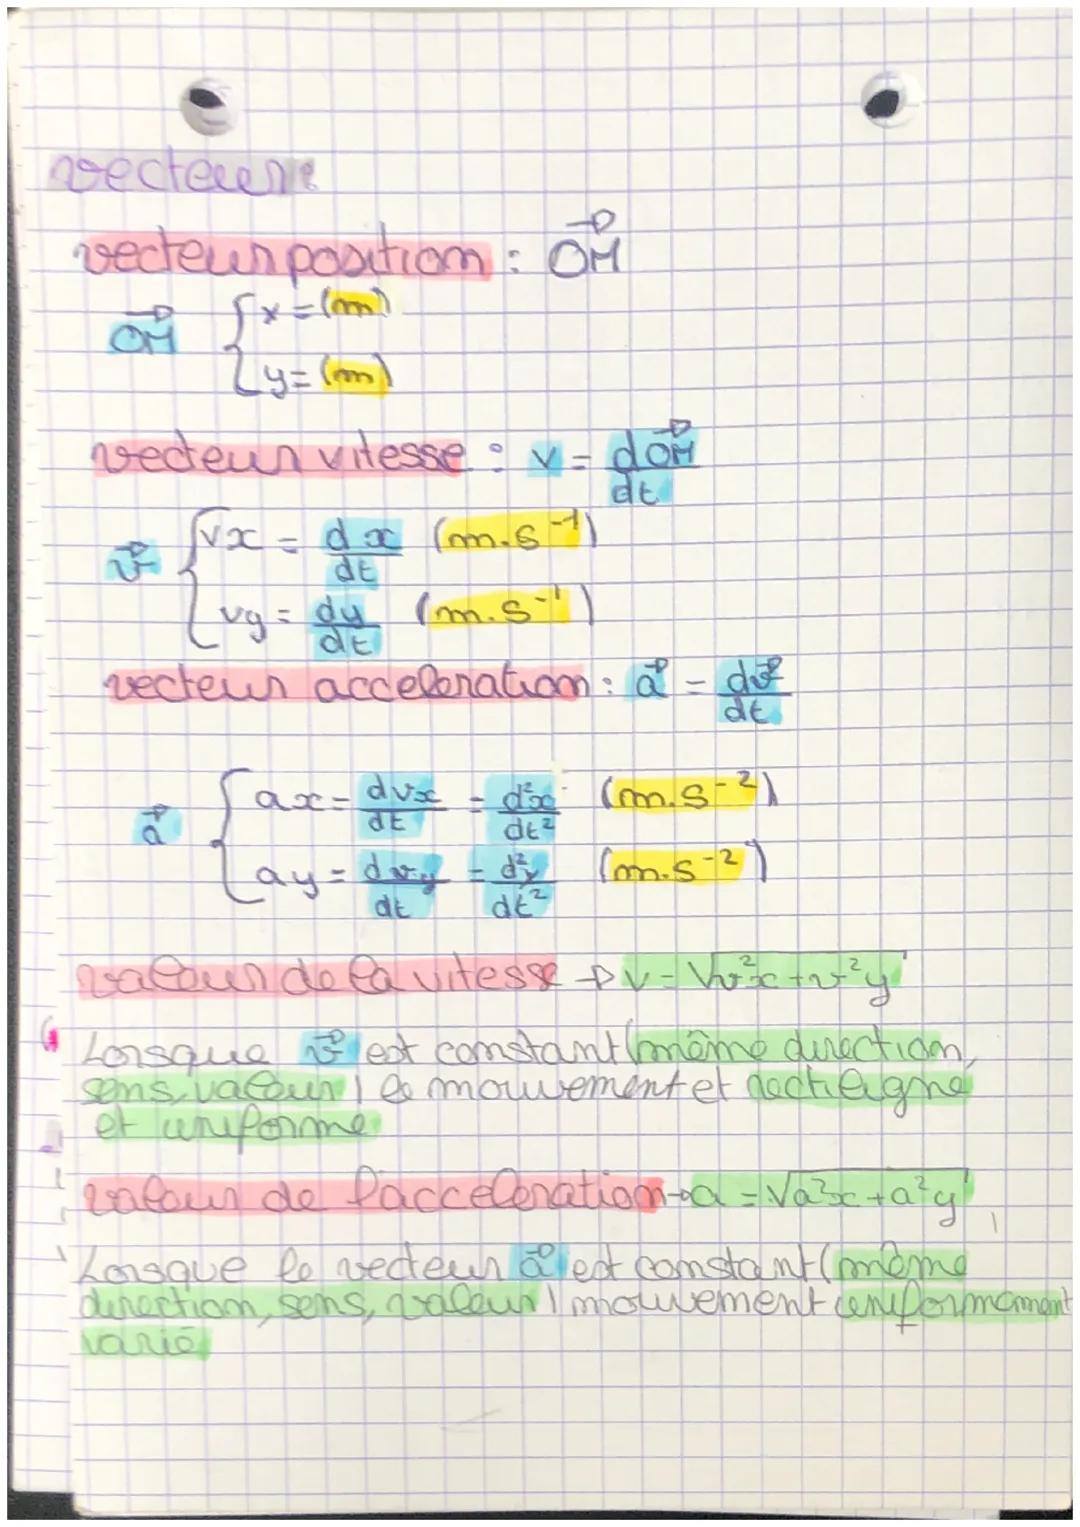 vecteur:
vecteur position : OM→
OM→ { x = (m)
y = (m)
vecteur vitesse : v = dOM→/dt
v→ { vx = dx/dt (m.s⁻¹)
vy = dy/dt (m.s⁻¹)
vecteur acceleration : a→ = dv→/dt
a→ { ax = dvx/dt = d²x/dt² (m.s⁻²)
ay = dvy/dt = d²y/dt² (m.s⁻²)
valeur de la vitesse → v = √v²x + v²y
Lorsque v→ est constant (même direction,
sens, valeur) le mouvement et rectiligne
et uniforme
valeur de l'acceleration → a = √a²x + a²y
Lorsque le vecteur a→ est constant (même
direction, sens, valeur) mouvement uniformement
varié